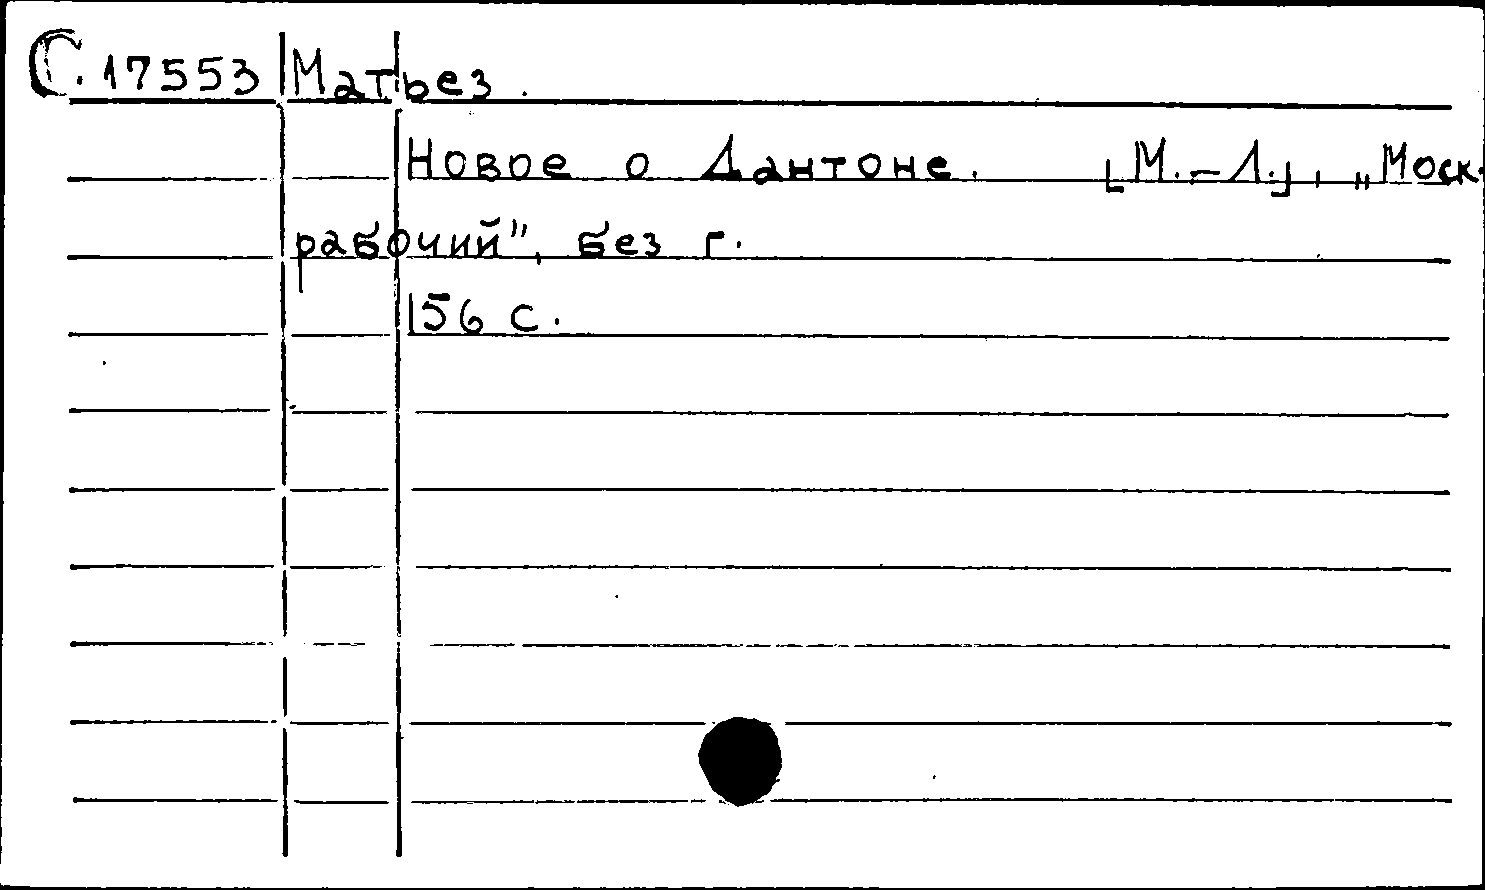 С. 17553 Матьез.
Новое о Дантоне. [М.-Л.], „Моск.
рабочий", без г.
156 с.